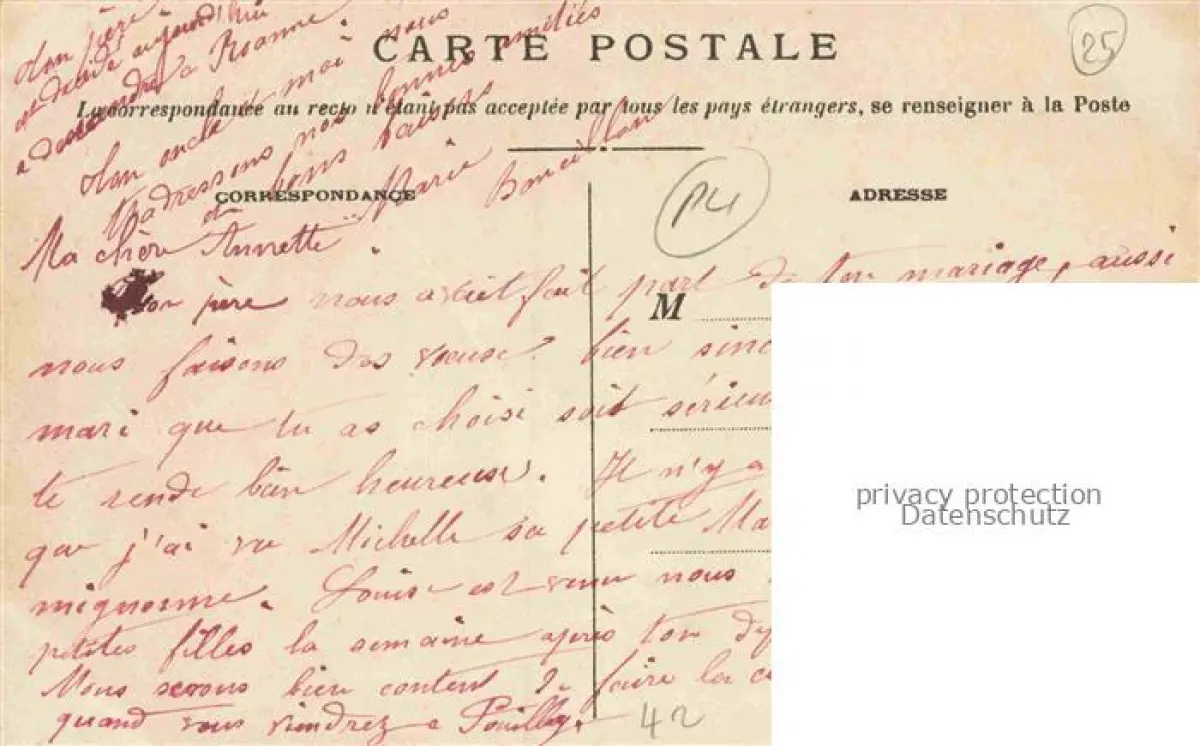 Mon père
est décidé aujourd'hui
a descendre à Roanne
Mon oncle et moi nous
t'adressons nos bonnes amitiés
et bons baisers
Marie Bonvillon
CARTE POSTALE
25
La correspondance au recto n'étant pas acceptée par tous les pays étrangers, se renseigner à la Poste
CORRESPONDANCE
P4
ADRESSE
Ma chère Annette
Ton père nous avait fait part de ton mariage, aussi
M
nous faisons des vœux bien sinc
mari que tu as choisi soit sérieu
te rende bien heureuse. Il n'y a
que j'ai vu Michelle sa petite Ma
mignonne. Louise est venu nous
petites filles la semaine après ton dép
Nous serons bien content de faire la c
quand vous viendrez a Pouilly.
42
privacy protection
Datenschutz